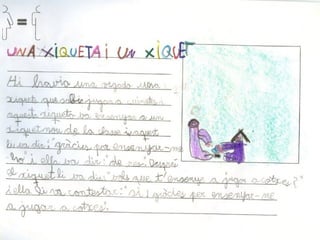 =
UNA XIQUETA I UN XIQUET
Hi havia una vegada una
xiqueta que sabia jugar a
aquesta xiqueta va ensenyar a un
xiquet nou de la classe i aquest
li va dir: "gràcies per ensenyar-me
-ho" i ella va dir: "de res". Després
el xiquet li va dir: "vols que t'ensenye a jugar a cotxes?"
i ella li va contestar: "si i gràcies per ensenyar-me
a jugar a cotxes".